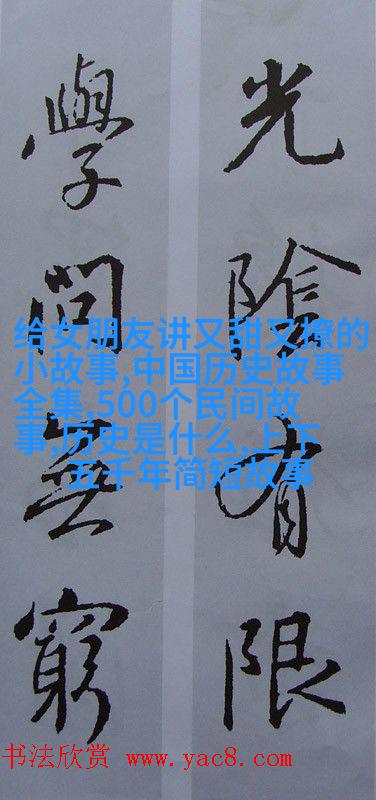 光陰有限
學問無窮
给女朋友讲又甜又撩的
小故事,中国历史故事
全集,500个民间故
事,历史是什么,上下
五千年简短故事
书法欣赏 www.yac8.com